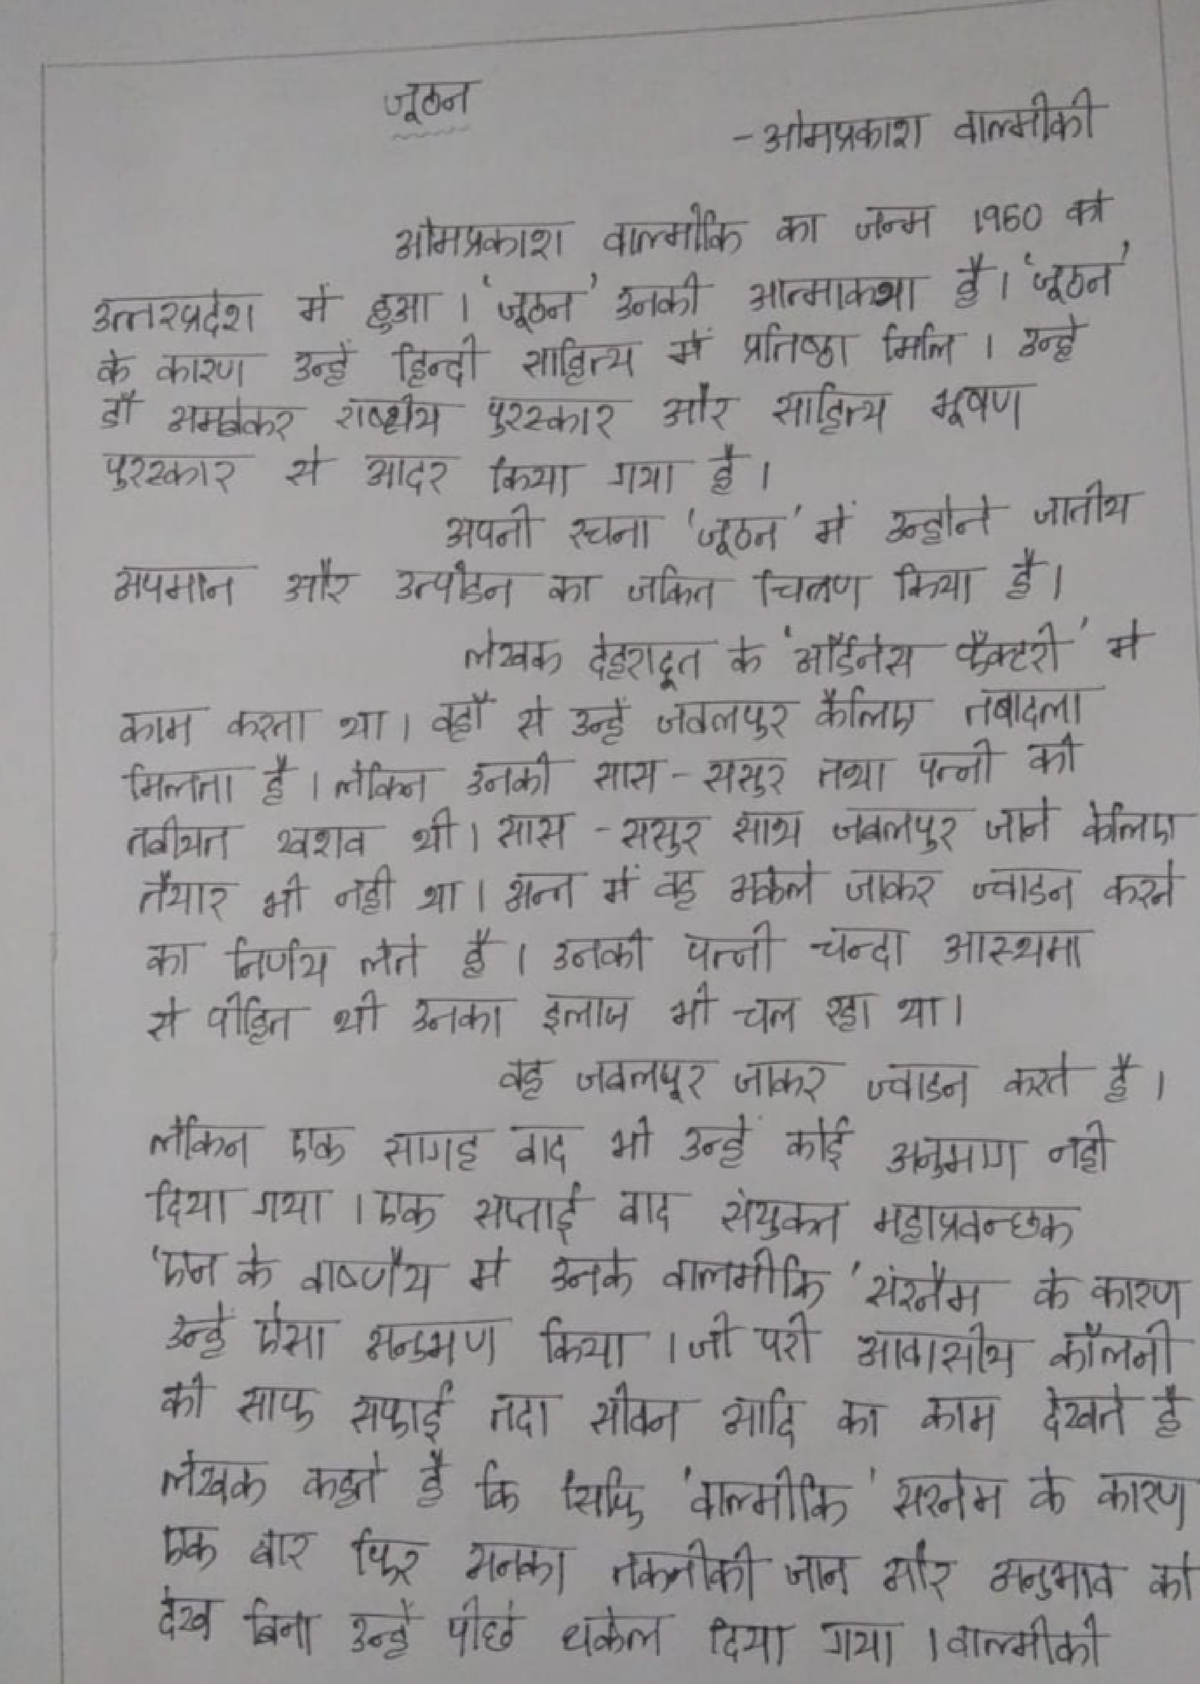 जूठन
-ओमप्रकाश वाल्मीकी
ओमप्रकाश वाल्मीकि का जन्म 1950 को
उत्तरप्रदेश में हुआ । 'जूठन' उनकी आत्माकथा है । 'जूठन'
के कारण उन्हें हिन्दी साहित्य में प्रतिष्ठा मिलि । उन्हे
डॉ अमबेकर राष्ट्रीय पुरस्कार और साहित्य भूषण
पुरस्कार से आदर किया गया है ।
अपनी रचना 'जूठन' में उन्होने जातीय
अपमान और उत्पीडन का जकित चित्रण किया है ।
लेखक देहरादून के 'ऑर्डनेस फैक्टरी' में
काम करता था । वहाँ से उन्हें जबलपुर केलिए तबादला
मिलता है । लेकिन उनकी सास - ससुर तथा पत्नी की
तबीयत खराब थी । सास - ससुर साथ जबलपुर जाने केलिए
तैयार भी नही था । अन्त में वह अकेले जाकर ज्वाइन करने
का निर्णय लेते है । उनकी पत्नी चन्दा आस्थमा
से पीड़ित थी उनका इलाज भी चल रहा था ।
वह जबलपूर जाकर ज्वाइन करते है ।
लेकिन एक सागह बाद भी उन्हें कोई अनुमाग नही
दिया गया । एक सप्ताई बाद संयुक्त महाप्रबन्छक
'एन के वाष्णैय में उनके वालमीकि 'संरनैम के कारण
उन्हे ऐसा अनुभण किया । जो परी आवासीय कॉलनी
की साफ सफाई तदा सीवन आदि का काम देखते है
लेखक कहते है कि सिर्फि 'वाल्मीकि' सरनेम के कारण
एक बार फिर अनका तकनीकी जान और अनुभाव को
देख बिना उन्हें पीछे धकेल दिया गया । वाल्मीकी